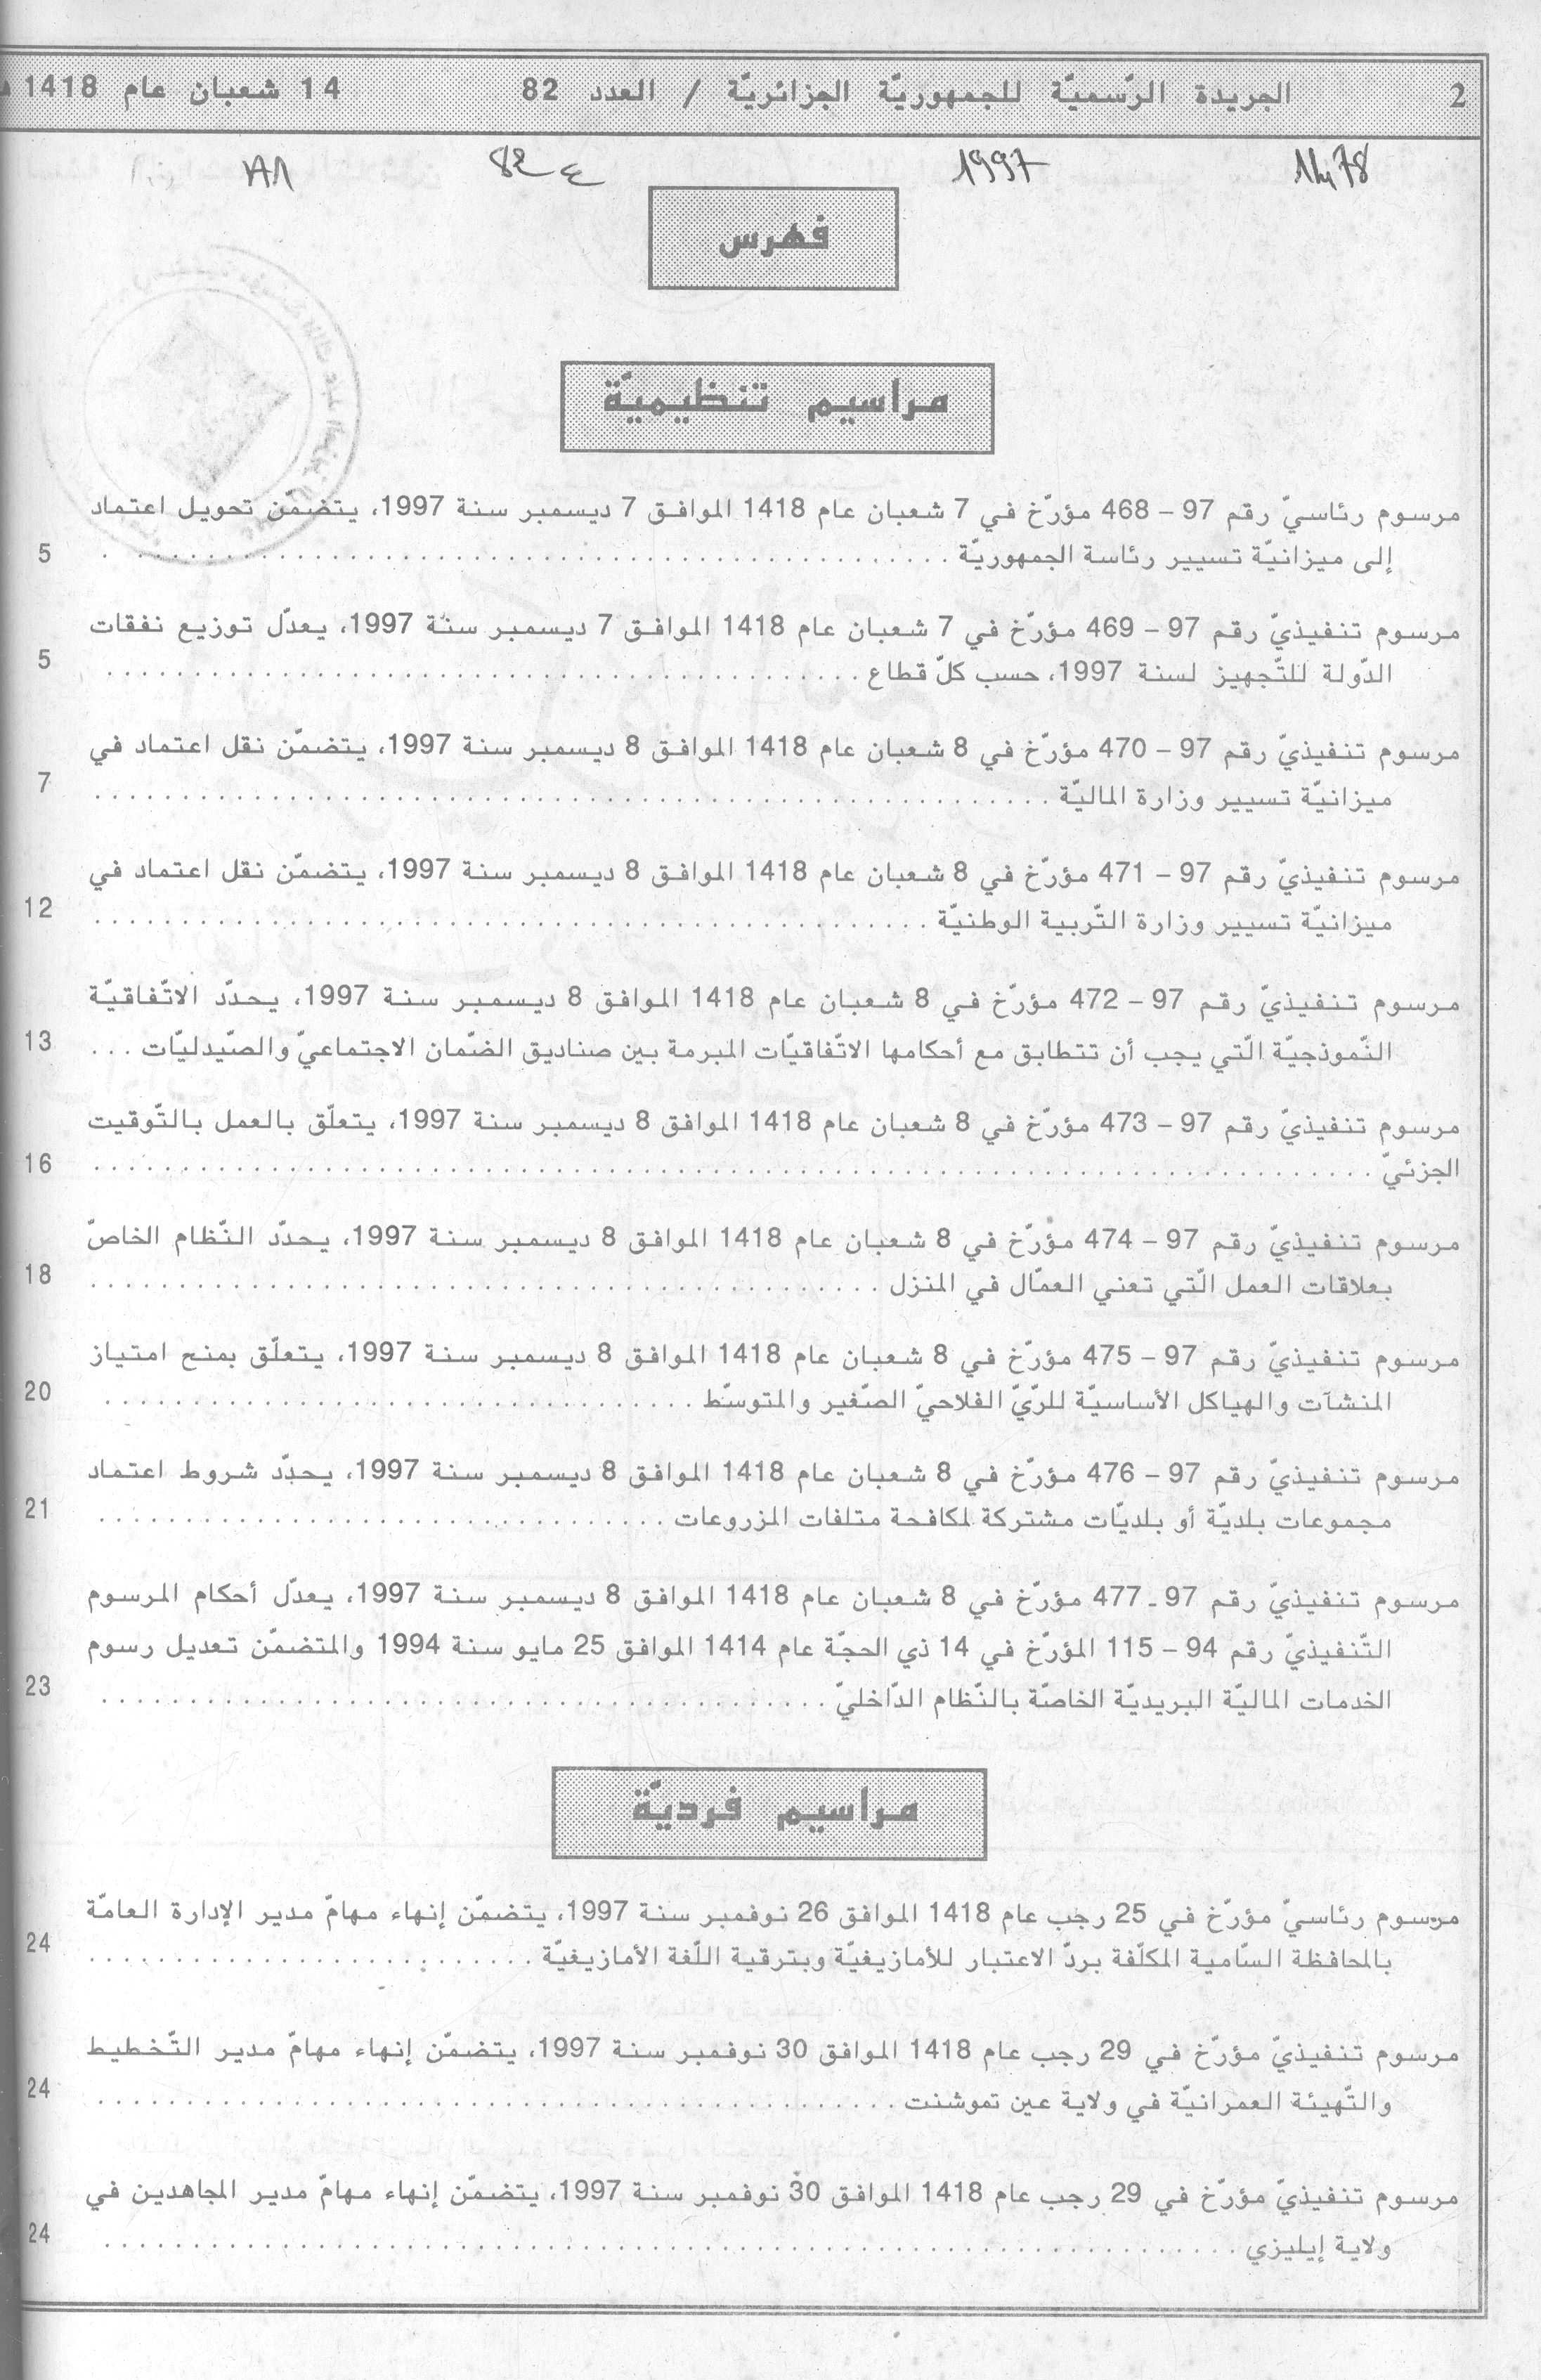 2 الجريدة الرّسميّة للجمهوريّة الجزائريّة / العدد 82 14 شعبان عام 1418 هـ
1478 1997 82 ع
فهرس
مراسيم تنظيميّة
مرسوم رئاسيّ رقم 97 – 468 مؤرّخ في 7 شعبان عام 1418 الموافق 7 ديسمبر سنة 1997، يتضمّن تحويل اعتماد
إلى ميزانيّة تسيير رئاسة الجمهوريّة . . . . . . . . . . 5
مرسوم تنفيذيّ رقم 97 – 469 مؤرّخ في 7 شعبان عام 1418 الموافق 7 ديسمبر سنة 1997، يعدّل توزيع نفقات
الدّولة للتّجهيز لسنة 1997، حسب كلّ قطاع . . . . . . . . . . 5
مرسوم تنفيذيّ رقم 97 – 470 مؤرّخ في 8 شعبان عام 1418 الموافق 8 ديسمبر سنة 1997، يتضمّن نقل اعتماد في
ميزانيّة تسيير وزارة الماليّة . . . . . . . . . . 7
مرسوم تنفيذيّ رقم 97 – 471 مؤرّخ في 8 شعبان عام 1418 الموافق 8 ديسمبر سنة 1997، يتضمّن نقل اعتماد في
ميزانيّة تسيير وزارة التّربية الوطنيّة . . . . . . . . . . 12
مرسوم تنفيذيّ رقم 97 – 472 مؤرّخ في 8 شعبان عام 1418 الموافق 8 ديسمبر سنة 1997، يحدّد الاتّفاقيّة
النّموذجيّة الّتي يجب أن تتطابق مع أحكامها الاتّفاقيّات المبرمة بين صناديق الضّمان الاجتماعيّ والصّيدليّات . . . 13
مرسوم تنفيذيّ رقم 97 – 473 مؤرّخ في 8 شعبان عام 1418 الموافق 8 ديسمبر سنة 1997، يتعلّق بالعمل بالتّوقيت
الجزئيّ . . . . . . . . . . 16
مرسوم تنفيذيّ رقم 97 – 474 مؤرّخ في 8 شعبان عام 1418 الموافق 8 ديسمبر سنة 1997، يحدّد النّظام الخاصّ
بعلاقات العمل الّتي تعني العمّال في المنزل . . . . . . . . . . 18
مرسوم تنفيذيّ رقم 97 – 475 مؤرّخ في 8 شعبان عام 1418 الموافق 8 ديسمبر سنة 1997، يتعلّق بمنح امتياز
المنشآت والهياكل الأساسيّة للرّيّ الفلاحيّ الصّغير والمتوسّط . . . . . . . . . . 20
مرسوم تنفيذيّ رقم 97 – 476 مؤرّخ في 8 شعبان عام 1418 الموافق 8 ديسمبر سنة 1997، يحدّد شروط اعتماد
مجموعات بلديّة أو بلديّات مشتركة لمكافحة متلفات المزروعات . . . . . . . . . . 21
مرسوم تنفيذيّ رقم 97 ـ 477 مؤرّخ في 8 شعبان عام 1418 الموافق 8 ديسمبر سنة 1997، يعدّل أحكام المرسوم
التّنفيذيّ رقم 94 – 115 المؤرّخ في 14 ذي الحجّة عام 1414 الموافق 25 مايو سنة 1994 والمتضمّن تعديل رسوم
الخدمات الماليّة البريديّة الخاصّة بالنّظام الدّاخليّ . . . . . . . . . . 23
مراسيم فرديّة
مرسوم رئاسيّ مؤرّخ في 25 رجب عام 1418 الموافق 26 نوفمبر سنة 1997، يتضمّن إنهاء مهامّ مدير الإدارة العامّة
بالمحافظة السّامية المكلّفة بردّ الاعتبار للأمازيغيّة وبترقية اللّغة الأمازيغيّة . . . . . . . . . . 24
مرسوم تنفيذيّ مؤرّخ في 29 رجب عام 1418 الموافق 30 نوفمبر سنة 1997، يتضمّن إنهاء مهامّ مدير التّخطيط
والتّهيئة العمرانيّة في ولاية عين تموشنت . . . . . . . . . . 24
مرسوم تنفيذيّ مؤرّخ في 29 رجب عام 1418 الموافق 30 نوفمبر سنة 1997، يتضمّن إنهاء مهامّ مدير المجاهدين في
ولاية إيليزي . . . . . . . . . . 24